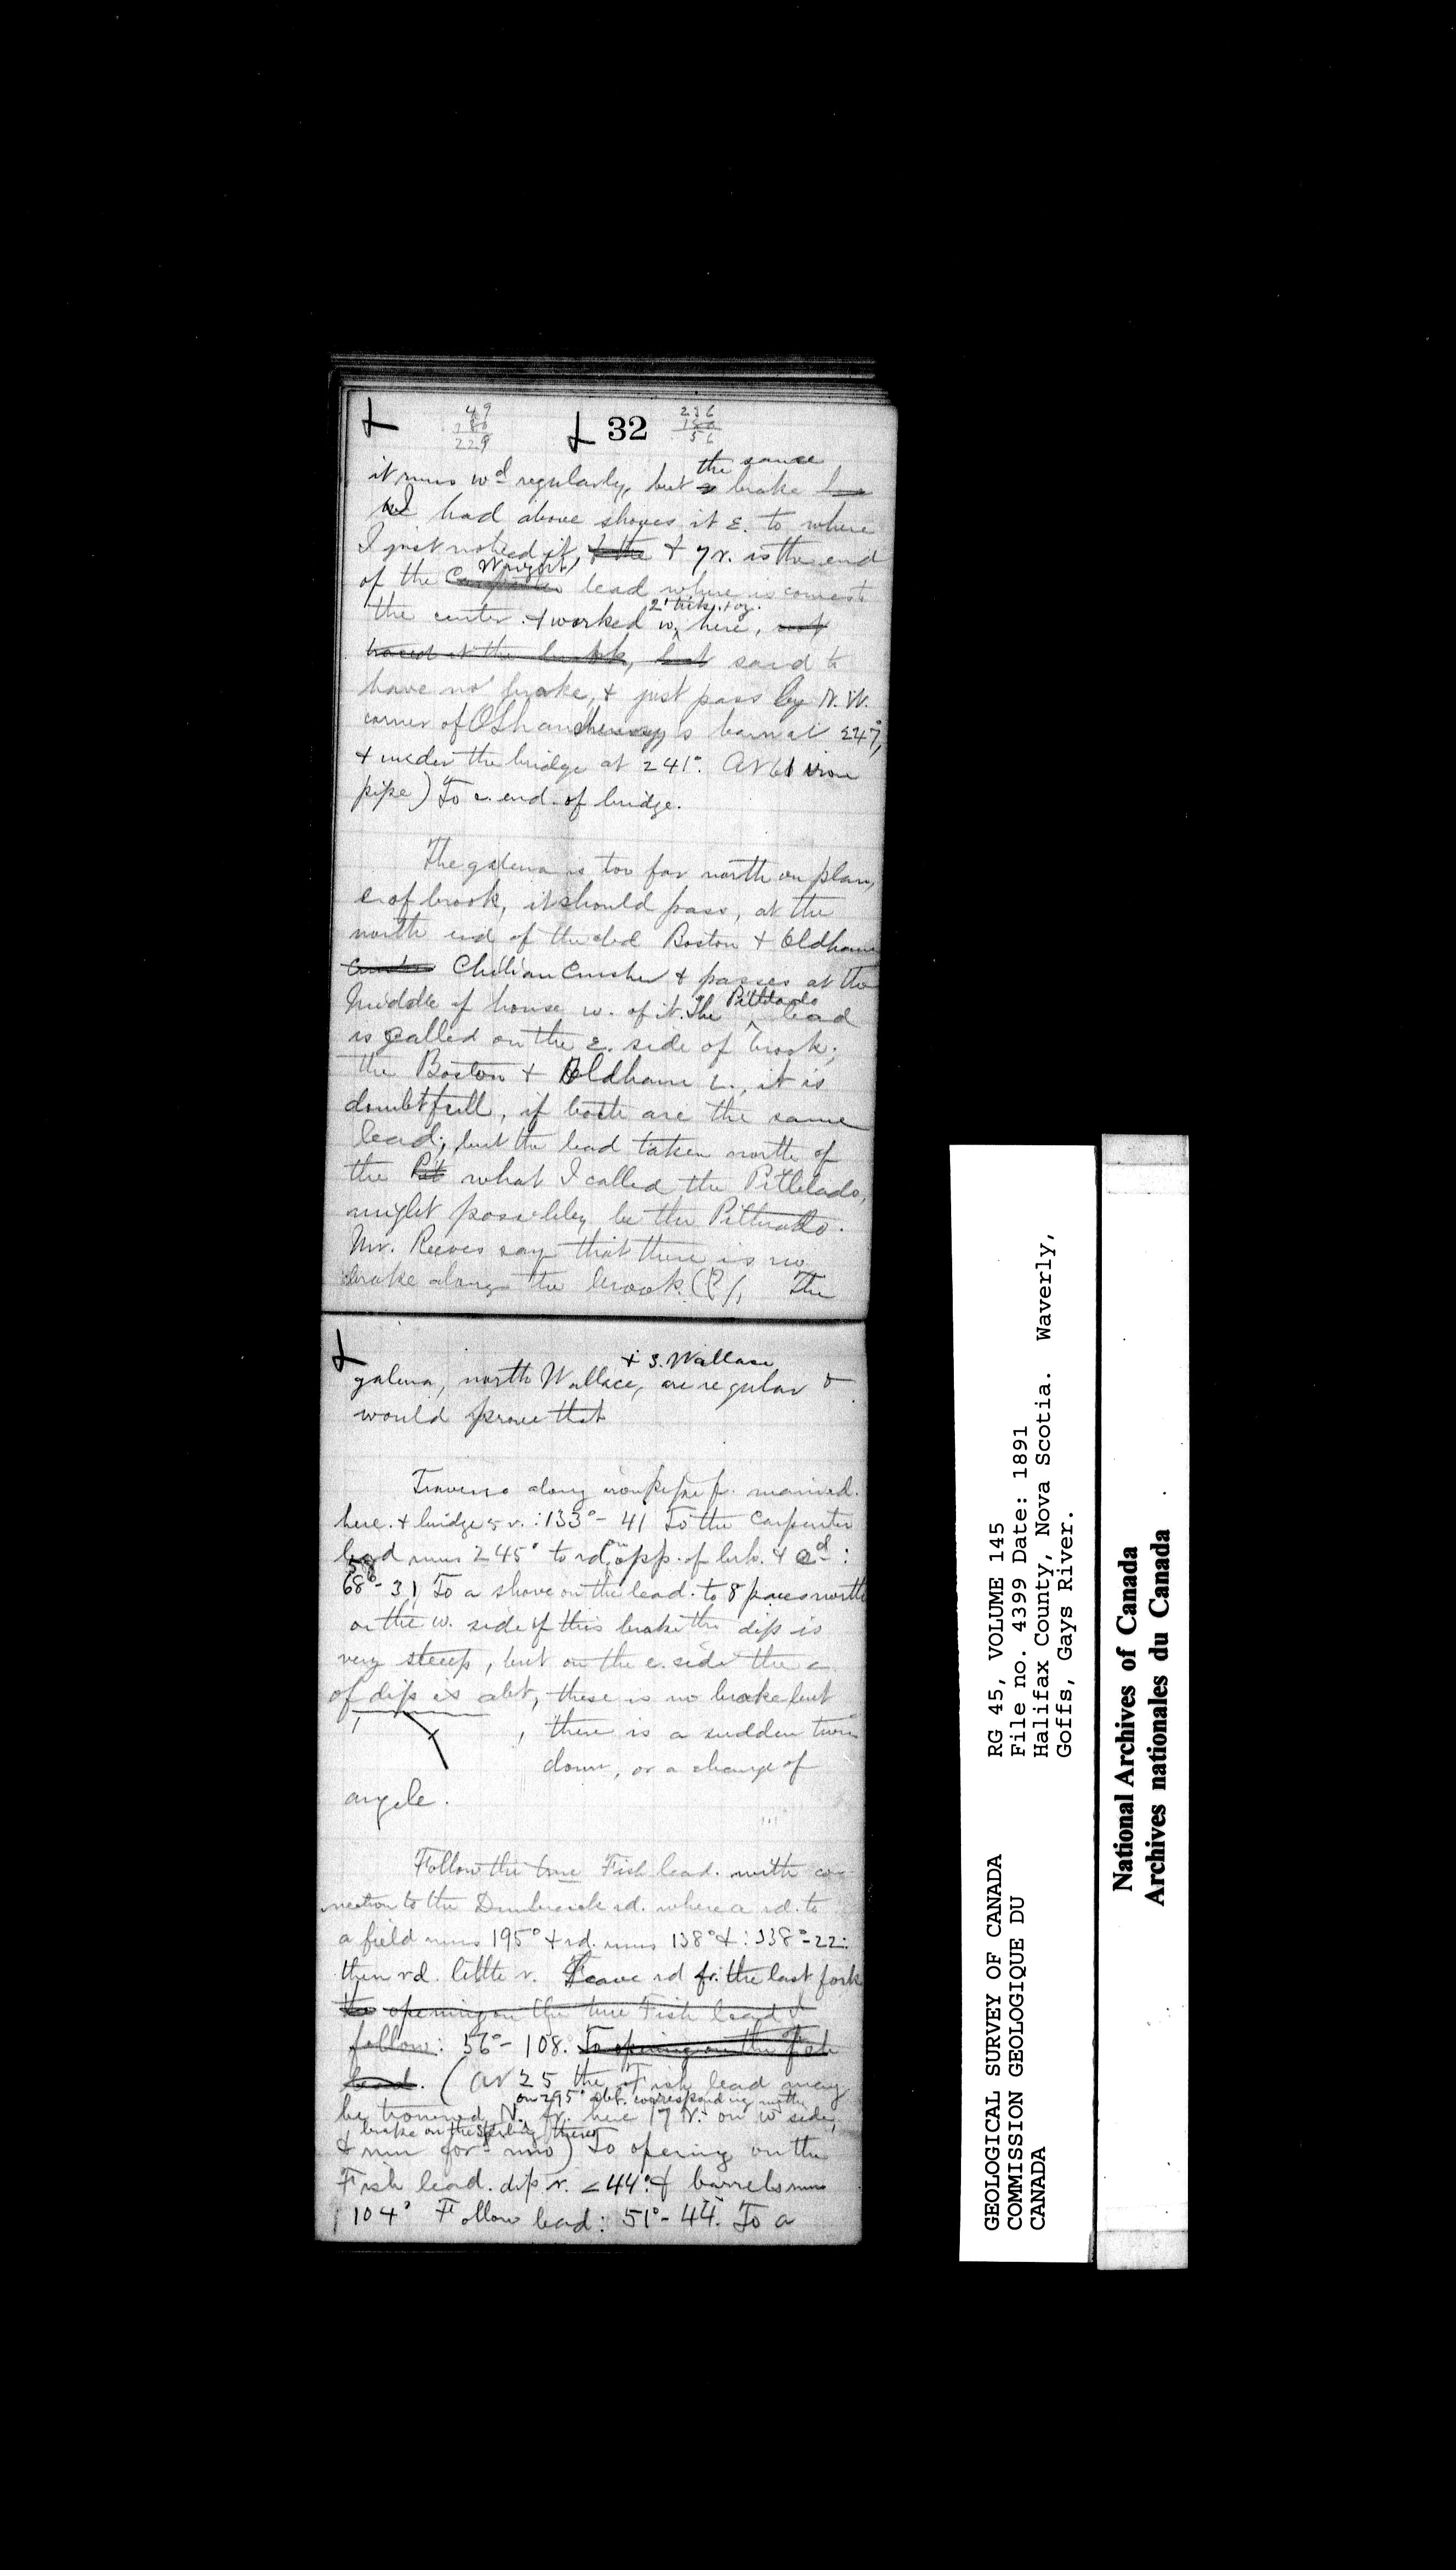 49
180
229
32
236
180
56
the same
it runs wd regularly, but a brake
had above shoves it E. to where
I just noticed it, & the & 7 r. is the end
of the Carpenter lead where is comes to
the center. & worked w. here, not
traced at the brook, but said to
have no brake, & just pass by N.W.
corner of OShaughnessy's barn at 247°,
& under the bridge at 241°. At 61 iron
pipe) To e. end. of bridge.
The galena is too far north on plan,
e. of brook, it should pass, at the
north end of the old Boston & Oldham
Crusher Chilian Crusher & passes at the
Middle of house w. of it. The Pittelado lead
is called on the E. side of brook;
the Boston & Oldham L., it is
doubtfull, if both are the same
lead; but the lead taken north of
the Pit what I called the Pittelado,
might possibley be the Pittelado.
Mr. Reeves say that there is no
brake along the brook. (?), The
& S. Wallace
galena, north Wallace, are regular &
would prove that
Traverse along iron pipe f.
here. & bridge 5 r.: 133° - 41 To the Carpenter
lead runs 245° to rd, opp. of brk. &
58
68° - 31 To a shove on the lead. to 8 paces north
on the w. side of this brake the dip is
very steeep, but on the e. side the
of dip is abt, these is no brake but
there is a sudden turn
down, or a change of
angele.
Follow the true Fish lead. with con-
nection to the rd. where a rd. to
a field runs 195° & rd. runs 138° & : 338° - 22:
then rd. little r. Leave rd fr. the last fork
the opening on the true Fish lead &
follow: 56° - 108. To opening on the Fish
lead. (At 25 the Fish lead may
on 295° abt. corresponding with
be N. fr. here 17 N. on w side,
brake on the Sterling there
& run for) To opening on the
Fish lead. dip r. < 44° & barrels runs
104° Follow lead: 51° - 44. To a
RG 45, VOLUME 145
File no. 4399 Date: 1891
Halifax County, Nova Scotia. Waverly,
Goffs, Gays River.
GEOLOGICAL SURVEY OF CANADA
COMMISSION GEOLOGIQUE DU
CANADA
National Archives of Canada
Archives nationales du Canada